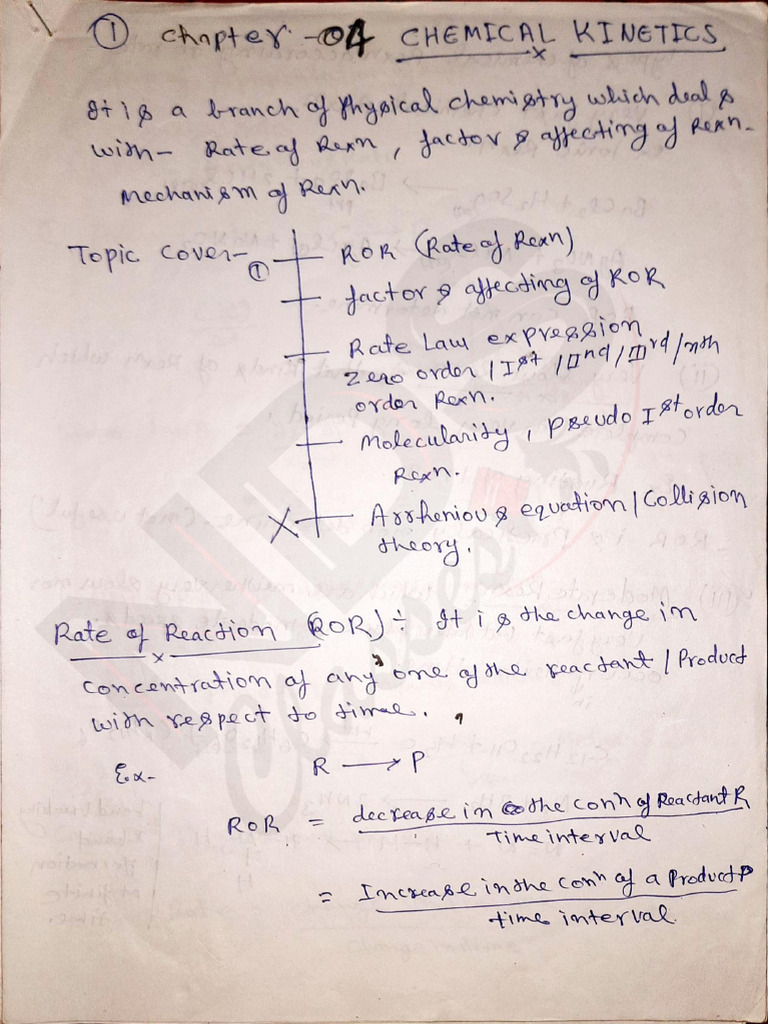 ① Chapter -04 CHEMICAL KINETICS
It is a branch of Physical chemistry which deals
with- Rate of Rexn, factors affecting of Rexn-
Mechanism of Rexn.
Topic Cover- ① ROR (Rate of Rexn)
factors affecting of ROR
Rate Law expression
Zero order / Ist / IInd / IIIrd / nth
order Rexn.
Molecularity, Pseudo Ist order
Rexn.
X Arrhenious equation / Collision
theory.
Rate of Reaction (ROR) ÷ It is the change in
concentration of any one of the reactant / Product
with respect to time.
Ex- R ⟶ P
ROR = decrease in the conⁿ of Reactant R
Time interval
= Increase in the conⁿ of a Product P
time interval
NDS
Classes